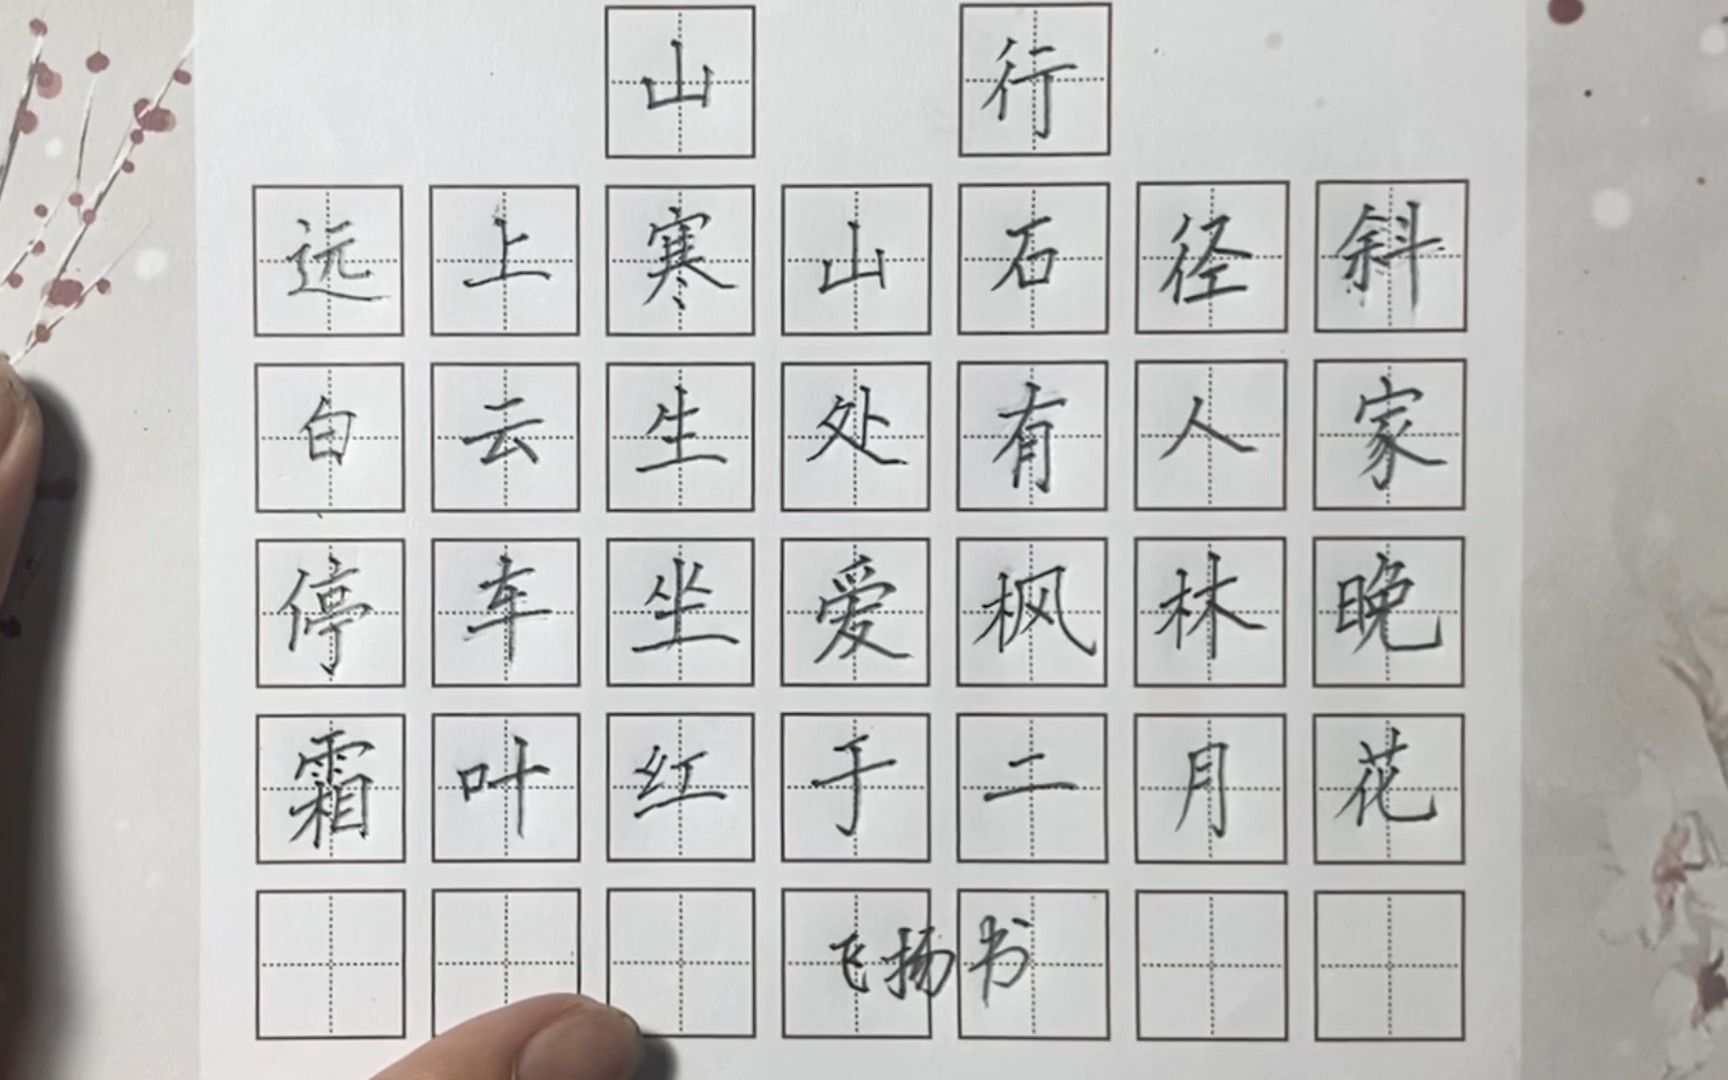 山行
远上寒山石径斜
白云生处有人家
停车坐爱枫林晚
霜叶红于二月花
飞扬书